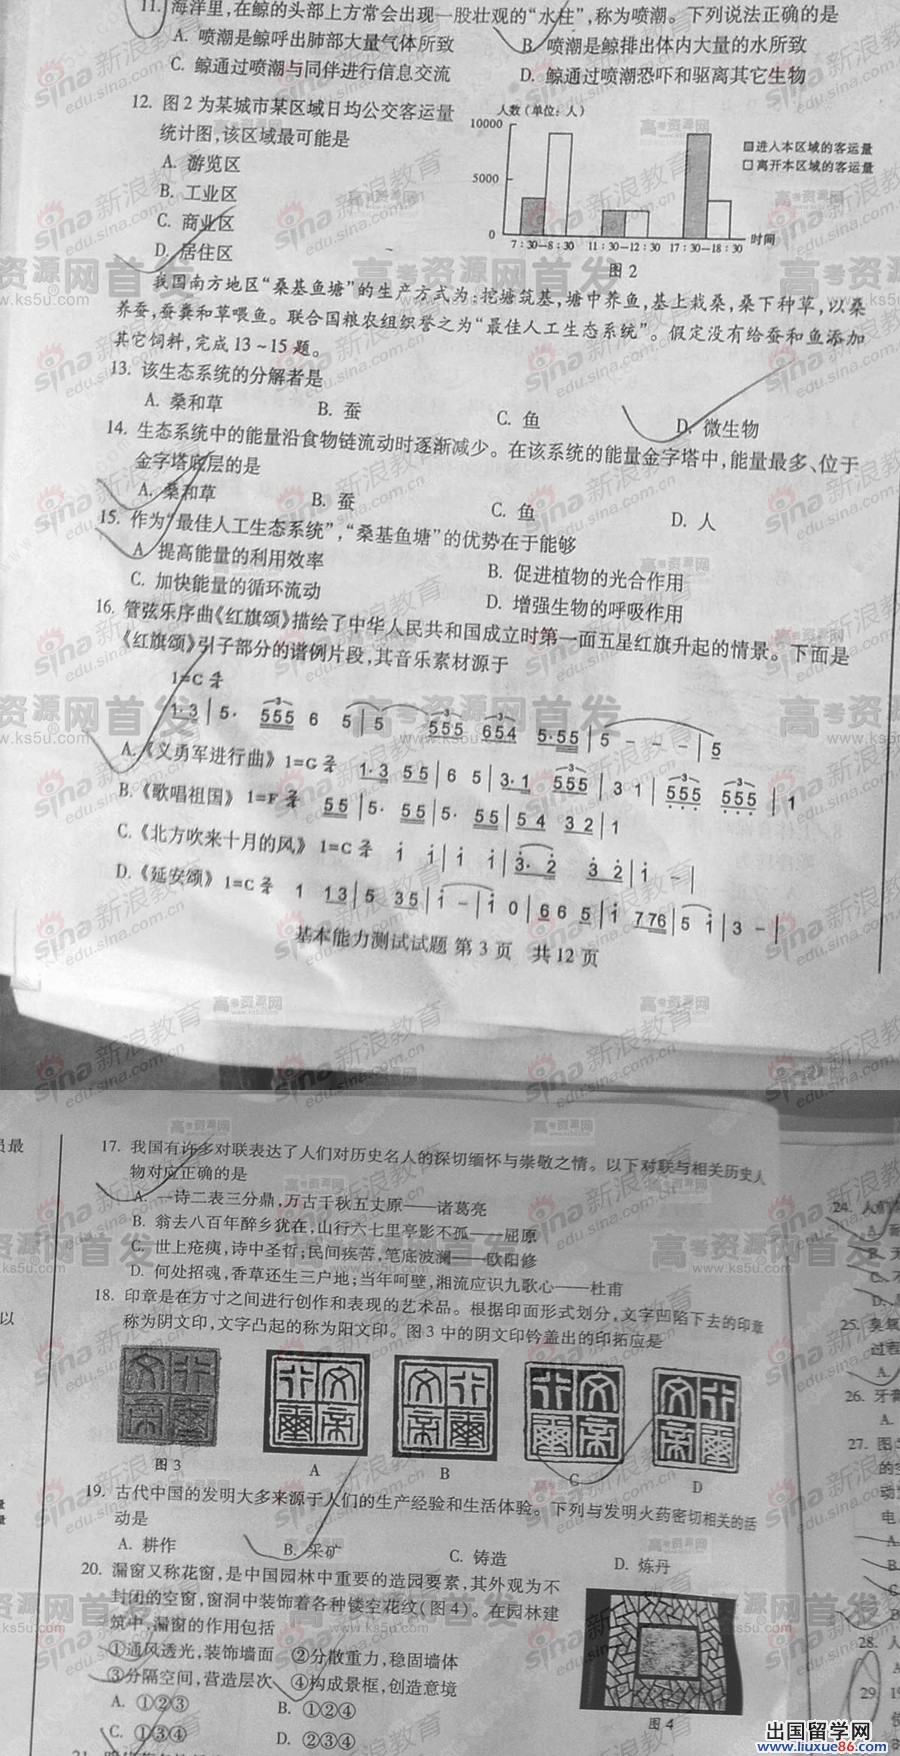 11. 海洋里,在鲸的头部上方常会出现一股壮观的“水柱”,称为喷潮。下列说法正确的是
A. 喷潮是鲸呼出肺部大量气体所致
B. 喷潮是鲸排出体内大量的水所致
C. 鲸通过喷潮与同伴进行信息交流
D. 鲸通过喷潮恐吓和驱离其它生物
12. 图2为某城市某区域日均公交客运量
统计图,该区域最可能是
A. 游览区
B. 工业区
C. 商业区
D. 居住区
人数(单位:人)
10000
5000
0
7:30—8:30 11:30—12:30 17:30—18:30 时间
进入本区域的客运量
离开本区域的客运量
图2
我国南方地区“桑基鱼塘”的生产方式为:挖塘筑基,塘中养鱼,基上栽桑,桑下种草,以桑
养蚕,蚕粪和草喂鱼。联合国粮农组织誉之为“最佳人工生态系统”。假定没有给蚕和鱼添加
其它饲料,完成13~15题。
13. 该生态系统的分解者是
A. 桑和草 B. 蚕 C. 鱼 D. 微生物
14. 生态系统中的能量沿食物链流动时逐渐减少。在该系统的能量金字塔中,能量最多、位于
金字塔底层的是
A. 桑和草 B. 蚕 C. 鱼 D. 人
15. 作为“最佳人工生态系统”,“桑基鱼塘”的优势在于能够
A 提高能量的利用效率
B. 促进植物的光合作用
C. 加快能量的循环流动
D. 增强生物的呼吸作用
16. 管弦乐序曲《红旗颂》描绘了中华人民共和国成立时第一面五星红旗升起的情景。下面是
《红旗颂》引子部分的谱例片段,其音乐素材源于
1=C
1·3 | 5· 555 6 5 | 5 555 654 5·55 | 5 - - - | 5
A.《义勇军进行曲》1=G 2/4 1·3 55 | 6 5 | 3·1 555 | 3 1 | 555 555 | 1
B.《歌唱祖国》1=F 2/4 55 | 5· 55 | 5· 55 | 54 32 | 1
C.《北方吹来十月的风》1=C 2/4 1 1 | 1 1 | 3·2 32 | 1 - |
D.《延安颂》1=C 2/4 1 13 | 5 35 | 1 - | 1 0 | 66 5 | 1 776 | 5 1 | 3 - |
基本能力测试试题 第3页 共12页
17. 我国有许多对联表达了人们对历史名人的深切缅怀与崇敬之情。以下对联与相关历史人
物对应正确的是
A. 一诗二表三分鼎,万古千秋五丈原——诸葛亮
B. 翁去八百年醉乡犹在,山行六七里亭影不孤——屈原
C. 世上疮痍,诗中圣哲;民间疾苦,笔底波澜——欧阳修
D. 何处招魂,香草还生三户地;当年呵壁,湘流应识九歌心——杜甫
18. 印章是在方寸之间进行创作和表现的艺术品。根据印面形式划分,文字凹陷下去的印章
称为阴文印,文字凸起的称为阳文印。图3中的阴文印钤盖出的印拓应是
图3 A B C D
19. 古代中国的发明大多来源于人们的生产经验和生活体验。下列与发明火药密切相关的活
动是
A. 耕作 B. 采矿 C. 铸造 D. 炼丹
20. 漏窗又称花窗,是中国园林中重要的造园要素,其外观为不
封闭的空窗,窗洞中装饰着各种镂空花纹(图4)。在园林建
筑中,漏窗的作用包括
①通风透光,装饰墙面 ②分散重力,稳固墙体
③分隔空间,营造层次 ④构成景框,创造意境
A. ①②③ B. ①②④
C. ①③④ D. ②③④
图4
24. 人们
25. 臭氧
过程
A.
26. 牙膏
A.
27. 图5
的空
动
电
28. 人
29. 19
员最
以
sina新浪教育
edu.sina.com.cn
高考资源网首发
www.ks5u.com
出国留学网
www.liuxue86.com